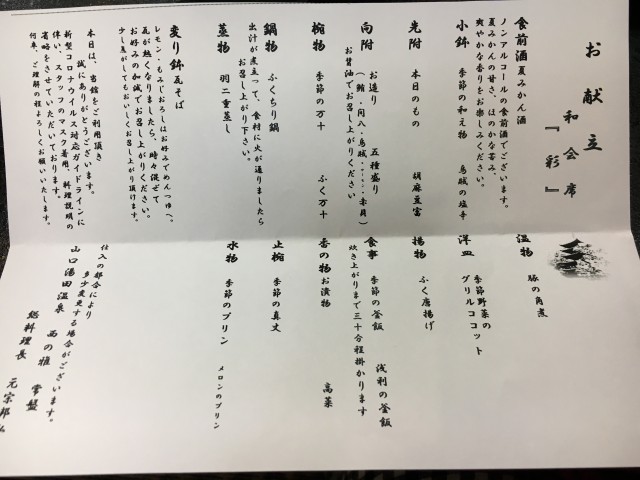 お献立
和会席
『彩』
食前酒 夏みかん酒
ノンアルコールの食前酒でございます。
夏みかんの甘さ、ほのかな苦み、
爽やかな香りをお楽しみください。
小鉢 季節の和え物 烏賊の塩辛
先附 本日のもの 胡麻豆富
向附 お造り 五種盛り
(鮪・間八・烏賊・・・・・赤貝)
お醤油でお召し上がりください
椀物 季節の万十 ふく万十
鍋物 ふくちり鍋
出汁が煮立って、食材に火が通りましたら
お召し上がり下さい。
蒸物 羽二重蒸し
変り鉢 瓦そば
レモン・もみじおろしはお好みでめんつゆへ。
瓦が熱くなりましたら、時々混ぜて
お好みの加減でお召し上がりください。
少し焦がしてもおいしくお召し上がり頂けます。
本日は、当館をご利用頂き
誠にありがとうございます。
新型コロナウイルス対応ガイドラインに
伴い、スタッフのマスク着用、料理説明の
省略をさせていただいております。
何卒、ご理解の程よろしくお願いいたします。
温物 豚の角煮
洋皿 季節野菜の
グリルココット
揚物 ふく唐揚げ
食事 季節の釜飯 浅利の釜飯
炊き上がりまで三十分程掛かります
香の物 お漬物 高菜
止椀 季節の真丈
水物 季節のプリン メロンのプリン
仕入の都合により
多少変更する場合がございます。
山口湯田温泉 西の雅 常盤
総料理長 元宗邦弘